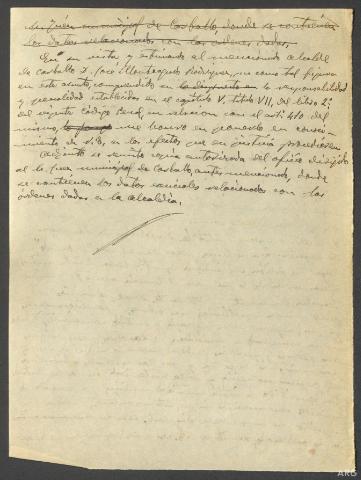 juez municipal de Carballo, donde se contienen
los datos relacionados con las órdenes dadas,
En su vista y estimando al mencionado alcalde
de Carballo D. José Rodríguez, como tal figura
en este asunto, comprendido en la responsabilidad
y penalidad establecidas en el capítulo V, título VII, del Libro 2º
del vigente Código Penal, en relación con el artº 410 del
mismo, me honro en ponerlo en conoci-
miento de V.S., a los efectos que en justicia procedieren
Adjunto se remite copia autorizada del oficio dirigido
al Sr. juez municipal de Carballo, antes mencionado, donde
se contienen los datos esenciales relacionados con las
órdenes dadas a la alcaldía.
ARG